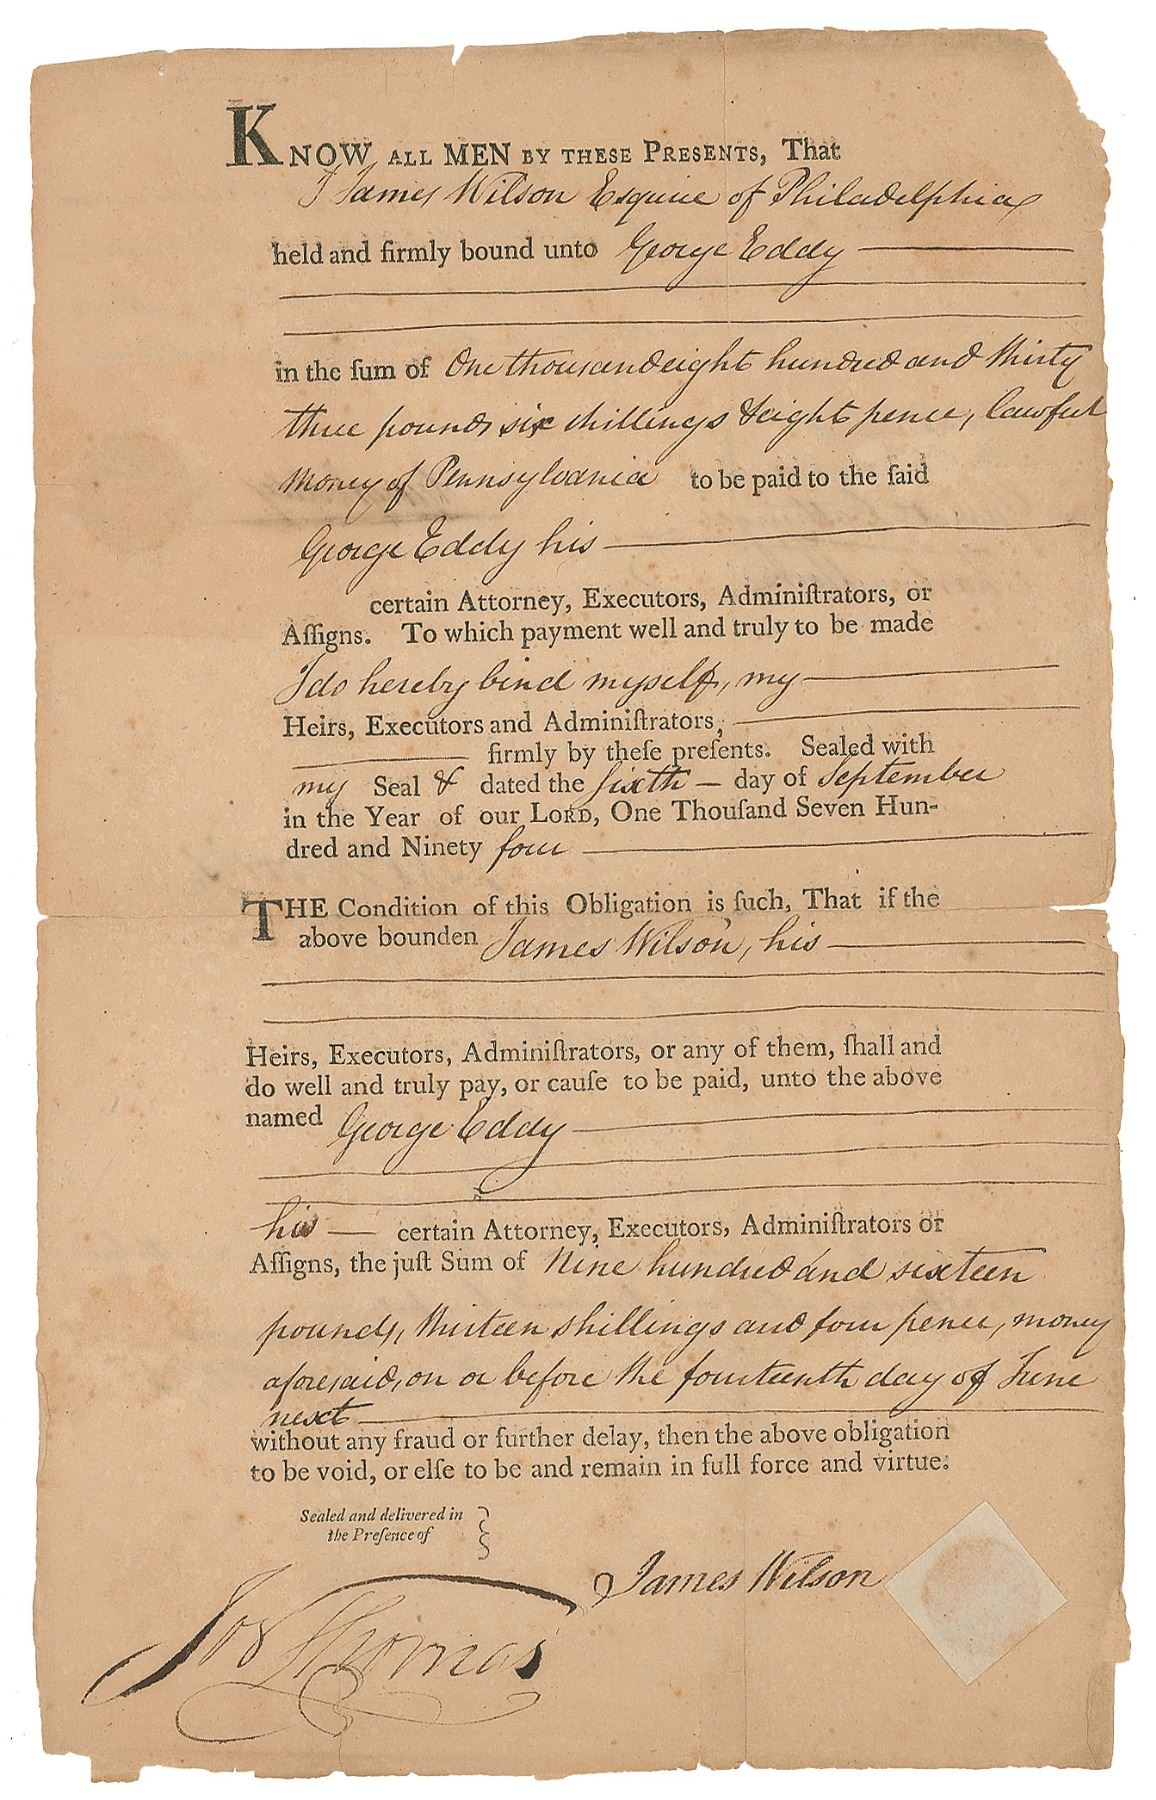 KNOW ALL MEN BY THESE PRESENTS, That
I James Wilson Esquire of Philadelphia
held and firmly bound unto George Eddy
in the ſum of One thousand eight hundred and thirty
three pounds six shillings & eight pence, lawful
money of Pennsylvania to be paid to the ſaid
George Eddy his
certain Attorney, Executors, Adminiſtrators, or
Aſſigns. To which payment well and truly to be made
I do hereby bind myself, my
Heirs, Executors and Adminiſtrators,
firmly by theſe preſents. Sealed with
my Seal & dated the sixth – day of September
in the Year of our LORD, One Thouſand Seven Hun-
dred and Ninety four
THE Condition of this Obligation is ſuch, That if the
above bounden James Wilson, his
Heirs, Executors, Adminiſtrators, or any of them, ſhall and
do well and truly pay, or cauſe to be paid, unto the above
named George Eddy
his — certain Attorney, Executors, Adminiſtrators or
Aſſigns, the juſt Sum of Nine hundred and sixteen
pounds, thirteen shillings and four pence, money
aforesaid, on or before the fourteenth day of June
next
without any fraud or further delay, then the above obligation
to be void, or elſe to be and remain in full force and virtue.
Sealed and delivered in
the Preſence of
James Wilson
Jos Thomas